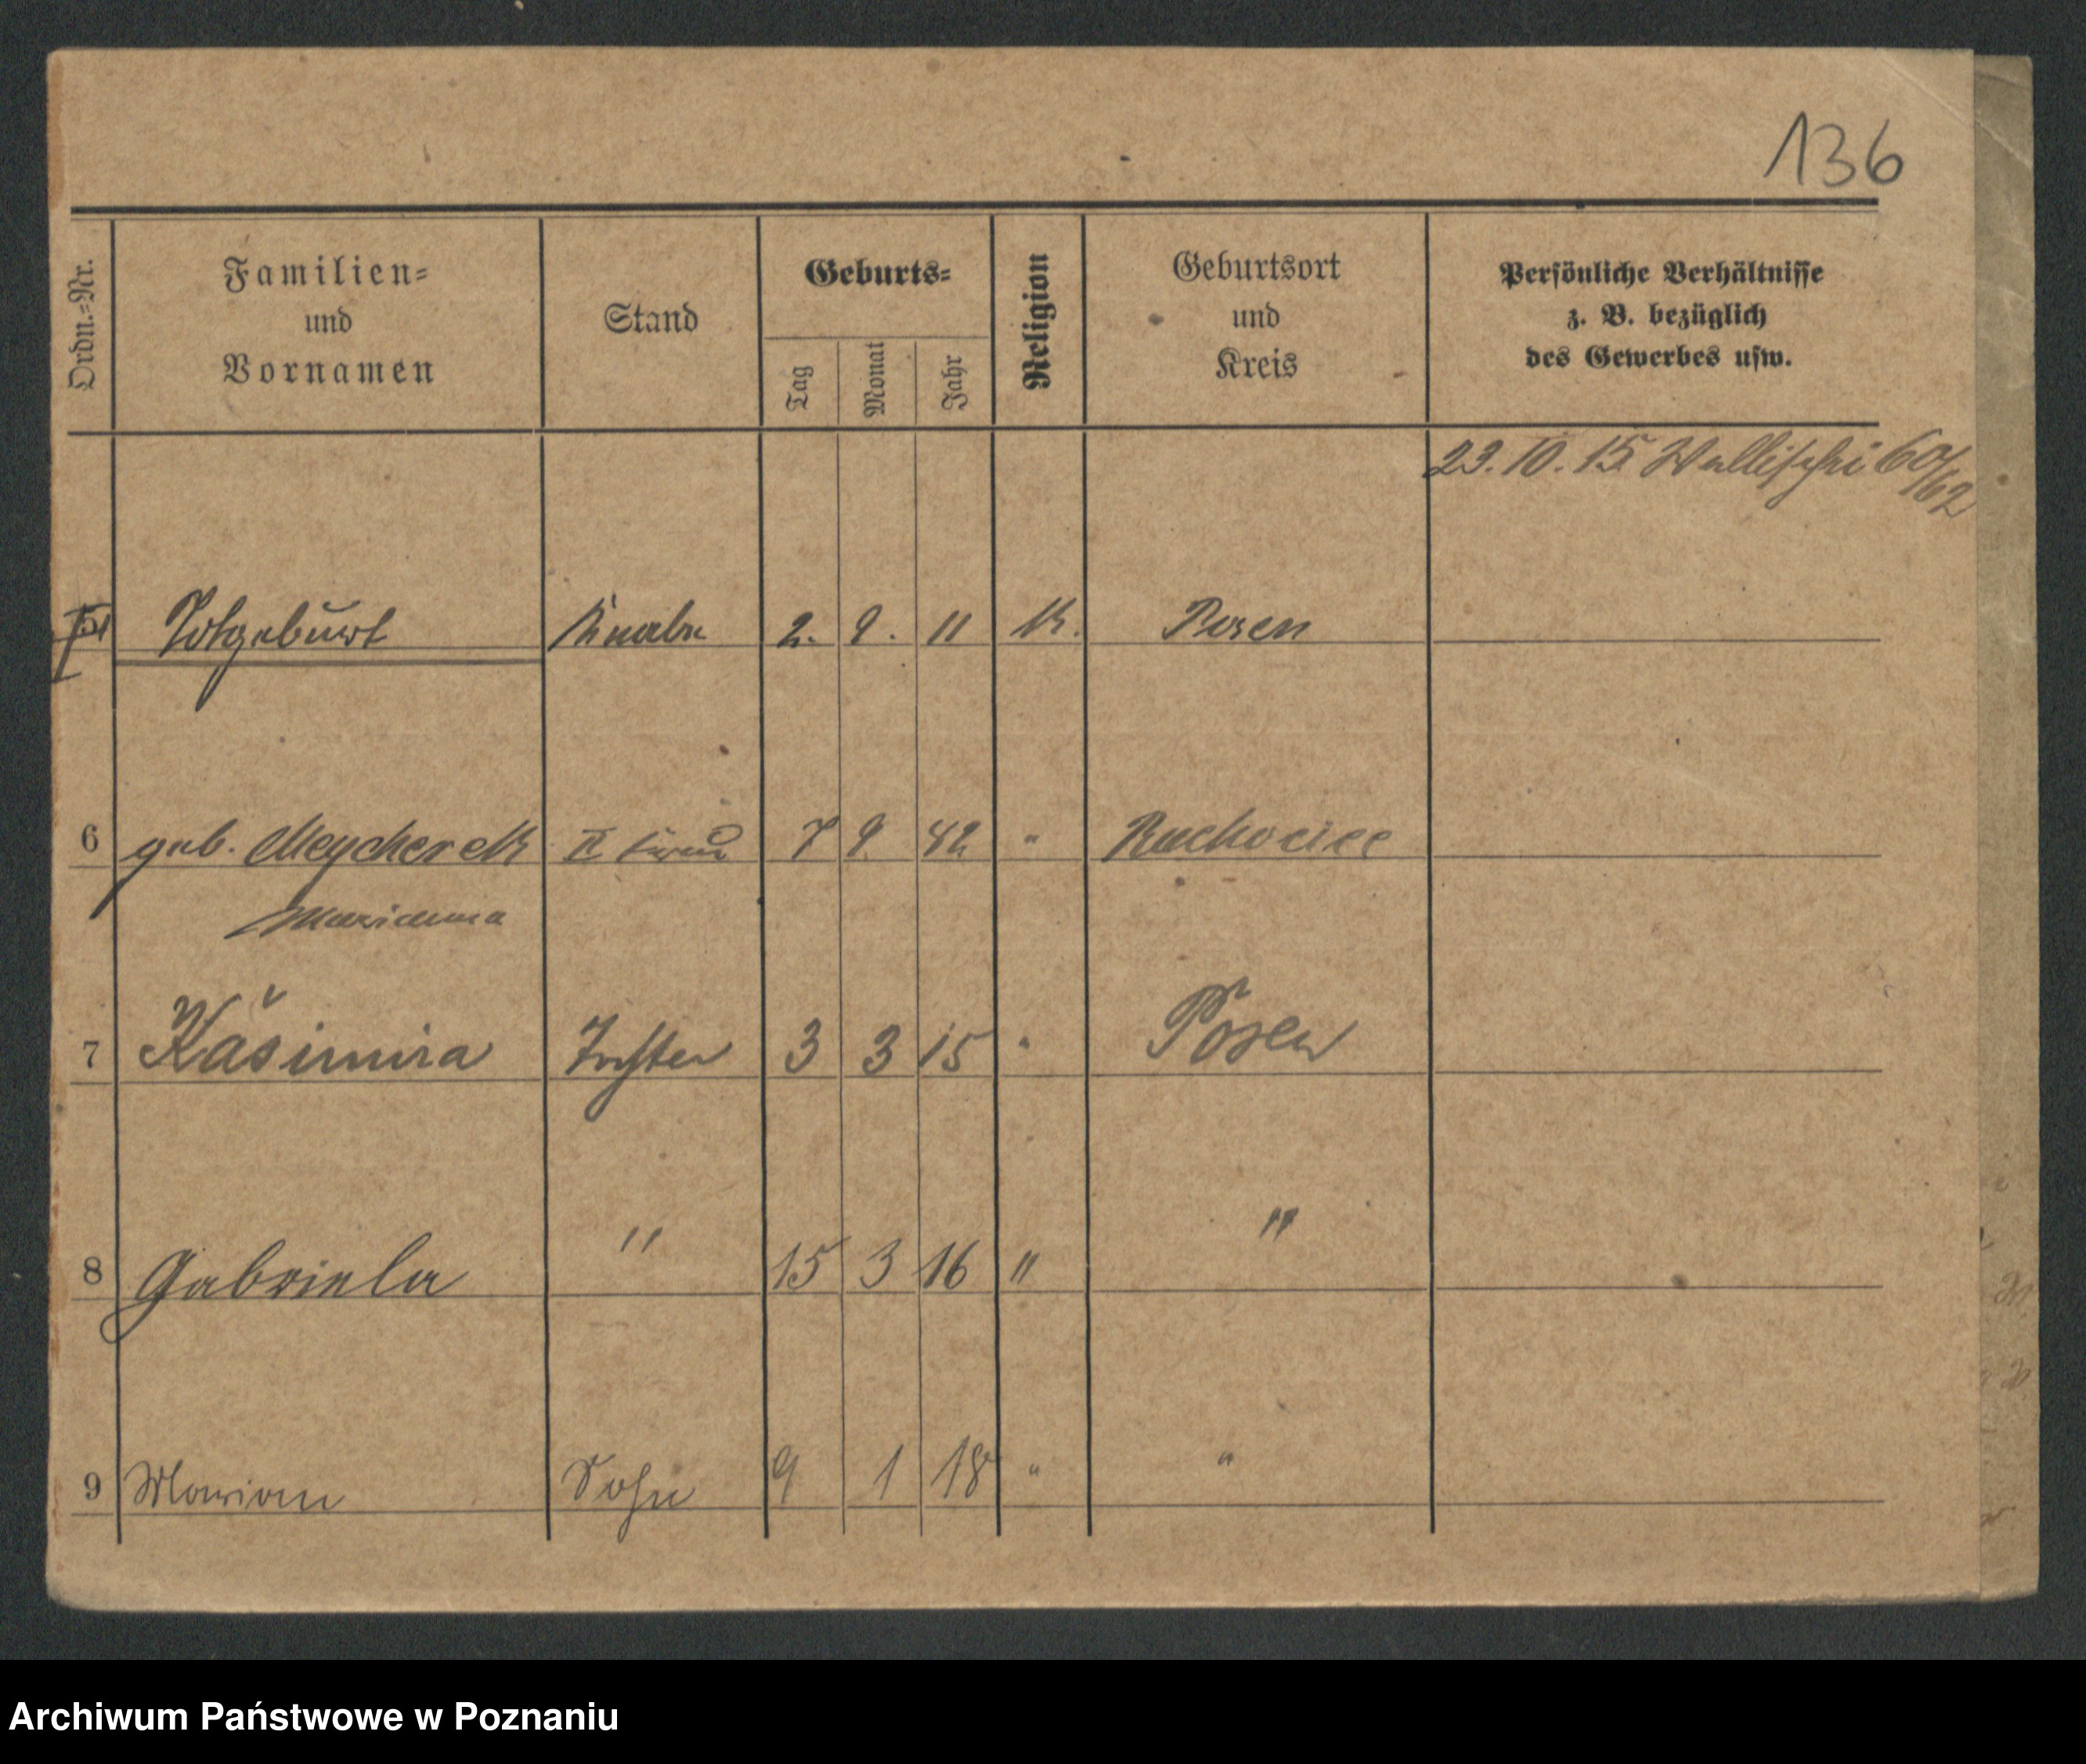 136
Ordn.-Nr.
Familien-
und
Vornamen
Stand
Geburts-
Tag
Monat
Jahr
Religion
Geburtsort
und
Kreis
Persönliche Verhältnisse
z. B. bezüglich
des Gewerbes usw.
23. 10. 15 Wallischei 60/62
5 Totgeburt Knabe 2. 9. 11 K. Posen
6 geb. Meycherek II Frau 7 9. 42 "
Marianna
7 Kasimira Tochter 3 3 15 " Posen
8 Gabriela " 15 3 16 " "
9 Marian Sohn 9 1 18 " "
Archiwum Państwowe w Poznaniu